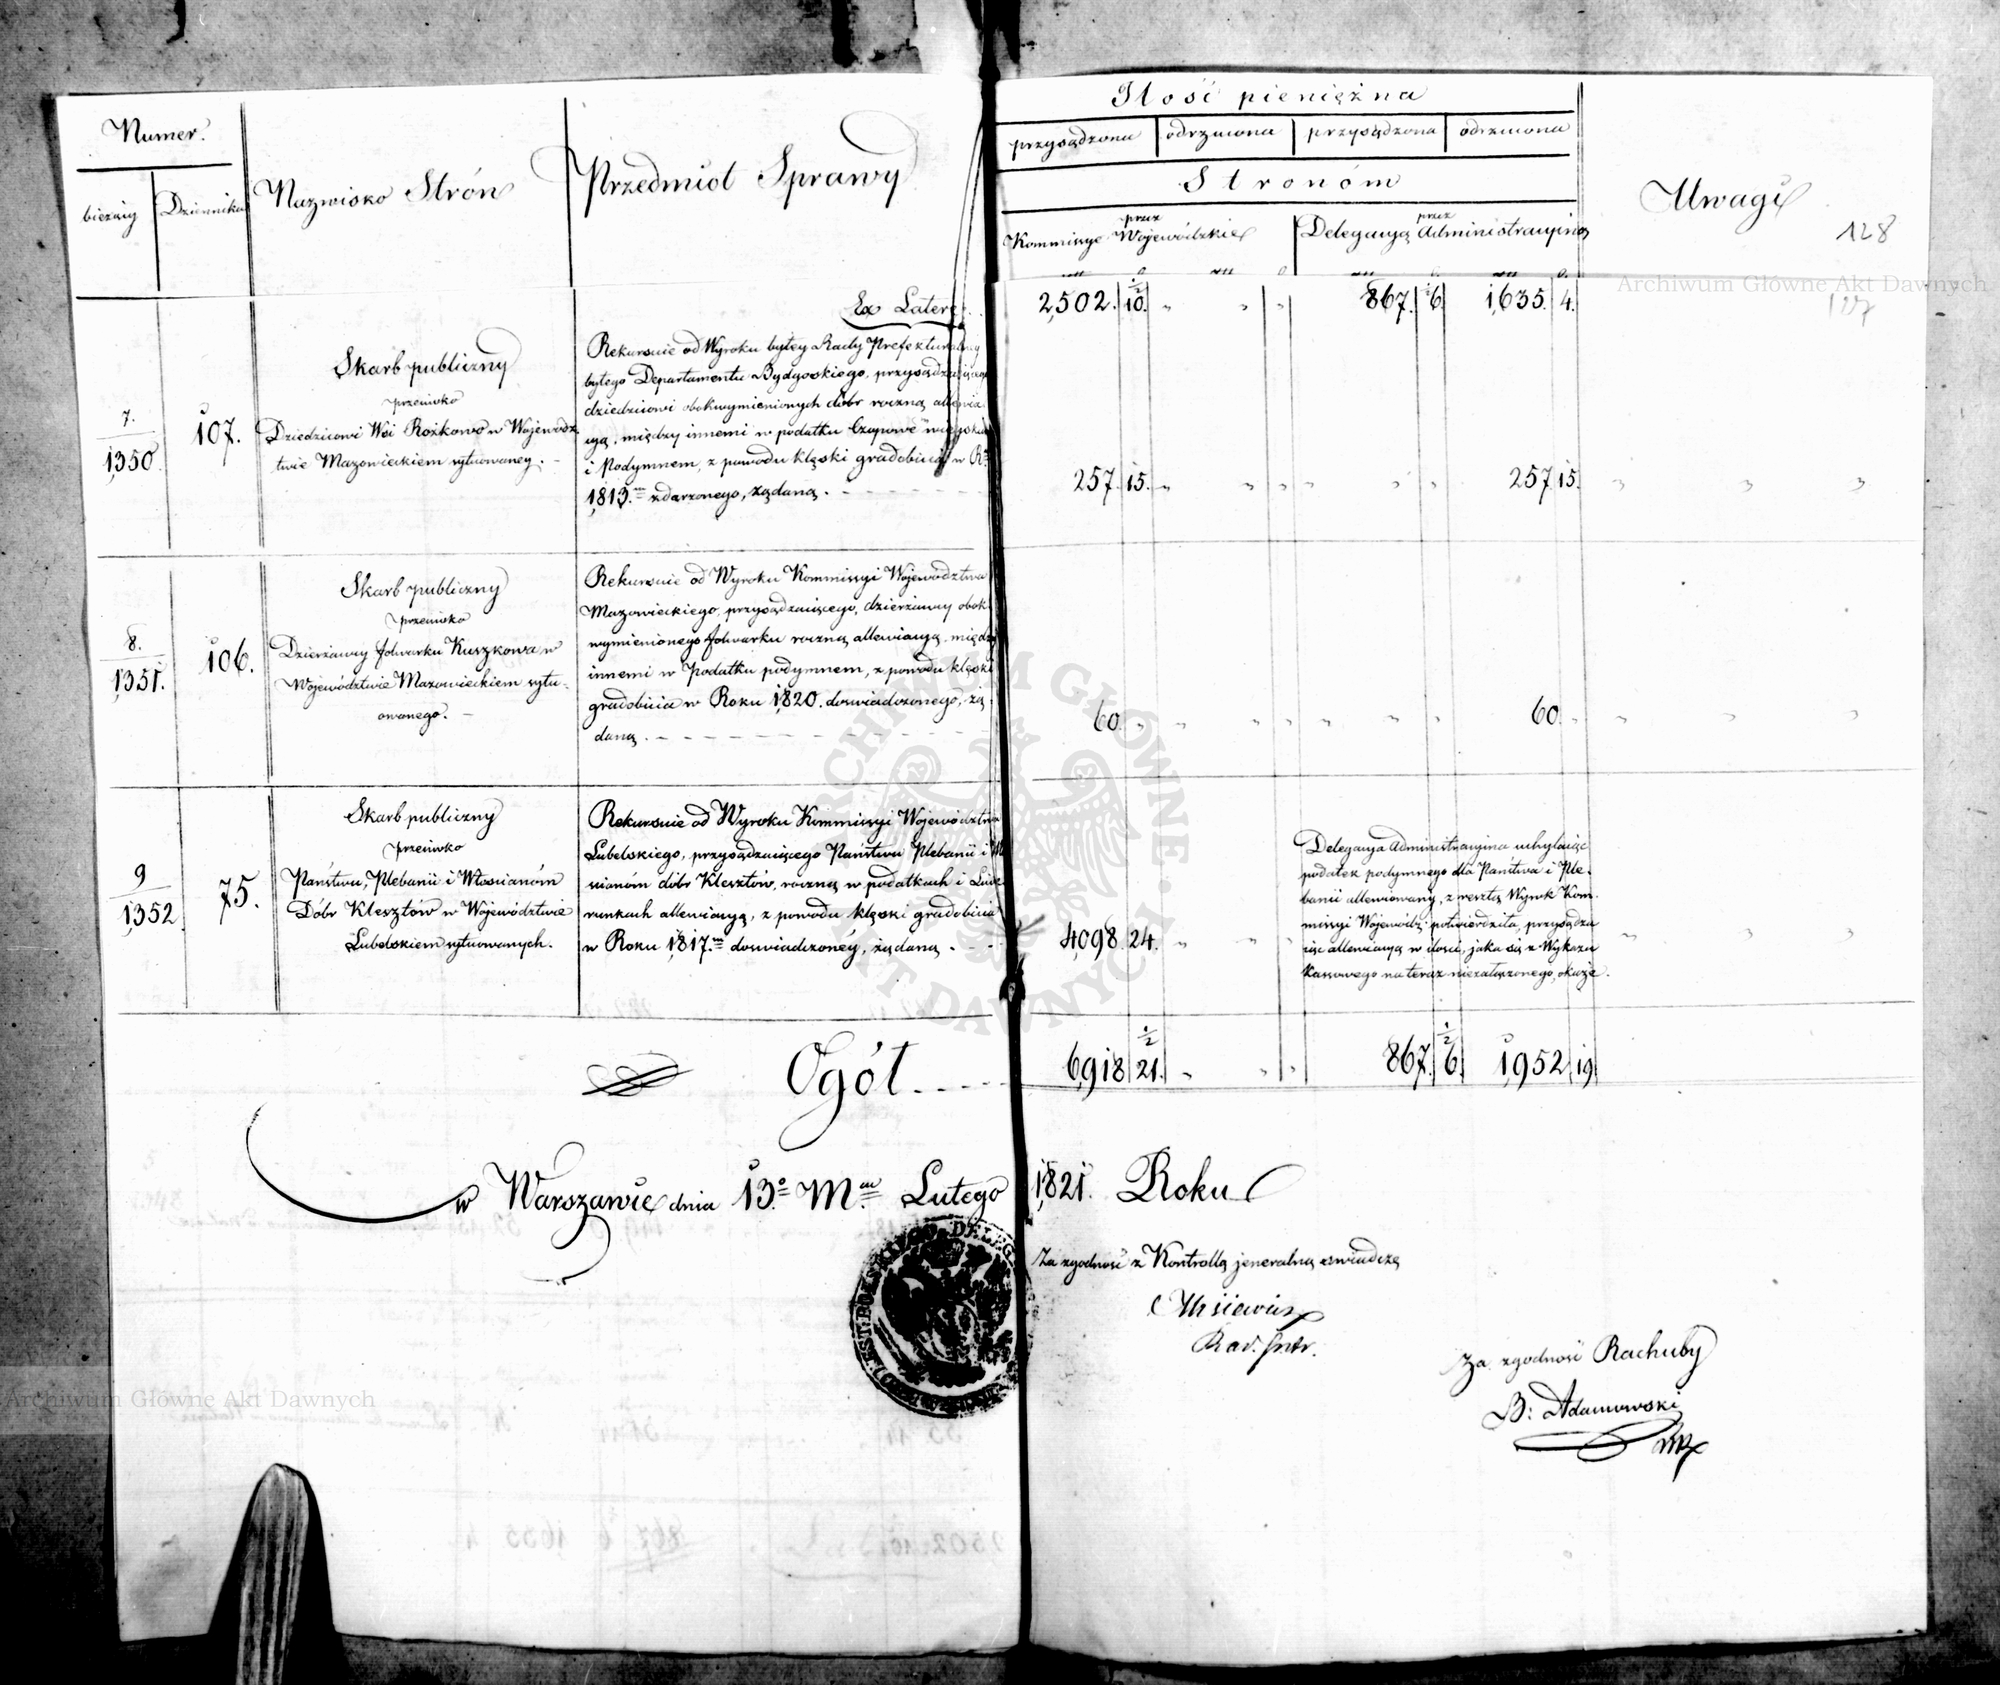 Numer.
bieżący
Dziennika
Nazwisko Strón
Przedmiot Sprawy
Ilość pieniężna
przysądzona odrzucona przysądzona odrzucona
Stronóm
przez
Kommissye Wojewódzkie
przez
Delegacyą Administracyiną
Uwagi
128
127
złł g. złł g. złł g. złł g.
Ex Latere
2,502. 10. ½ „ „ „ 867. 6 ½ 1,635. 4.
7.
1,350.
107.
Skarb publiczny
przeciwko
Dziedzicowi Wsi Rożkowo w Wojewódz
twie Mazowieckiem sytuowaney. -
Rekursuie od Wyroku byłey Rady Prefekturalney
byłego Departamentu Bydgoskiego, przysądzaiącego
dziedzicowi obokwymienionych dóbr roczną allewia
cyą, między innemi w podatku Czopowe wieyskie
i Podymnem, z powodu klęski gradobicia w R.
1,813.m zdarzonego, żądaną.
257. 15. „ „ „ „ „ „ 257. 15. „ „ „
8.
1,351.
106.
Skarb publiczny
przeciwko
Dzierżawcy folwarku Kuszkowa w
Województwie Mazowieckiem sytu-
owanego. -
Rekursuie od Wyroku Kommissyi Województwa
Mazowieckiego, przysądzaiącego, dzierżawcy obok
wymienionego folwarku roczną allewiacyą, między
innemi w Podatku podymnem, z powodu klęski
gradobicia w Roku 1,820. doswiadczonego, żą
daną.
60. „ „ „ „ „ „ „ 60. „ „ „ „
9
1,352
75.
Skarb publiczny
przeciwko
Państwu, Plebanii i Włoscianóm
Dóbr Klesztów w Województwie
Lubelskiem sytuowanych.
Rekursuie od Wyroku Kommissyi Województwa
Lubelskiego, przysądzaiącego Państwu Plebanii i Wło
scianóm dóbr Klesztów, roczną w podatkach i Lwe
runkach allewiacyą, z powodu klęski gradobicia
w Roku 1,817.m doswiadczoney, żądaną.
4,098. 24. „ „ „
Delegacya Administracyina uchylaiąc
podatek podymnego dla Państwa i Ple-
banii allewiowany, z resztą Wyrok Kom-
missyi Wojewódz: potwierdziła, przysądza
iąc allewiacyą w ilosci, jaka się z Wykazu
Kassowego na teraz niezałączonego, okaże.
Ogół
6,918 21. ½ „ „ „ 867. 6 ½ 1,952 19
w Warszawie dnia 13.o M.ca Lutego 1,821. Roku
Za zgodność z Kontrollą jeneralną zswiadcza
Za zgodność Rachuby
B: Adamowski
mp
Archiwum Główne Akt Dawnych
Archiwum Główne Akt Dawnych
ARCHIWUM GŁÓWNE AKT DAWNYCH